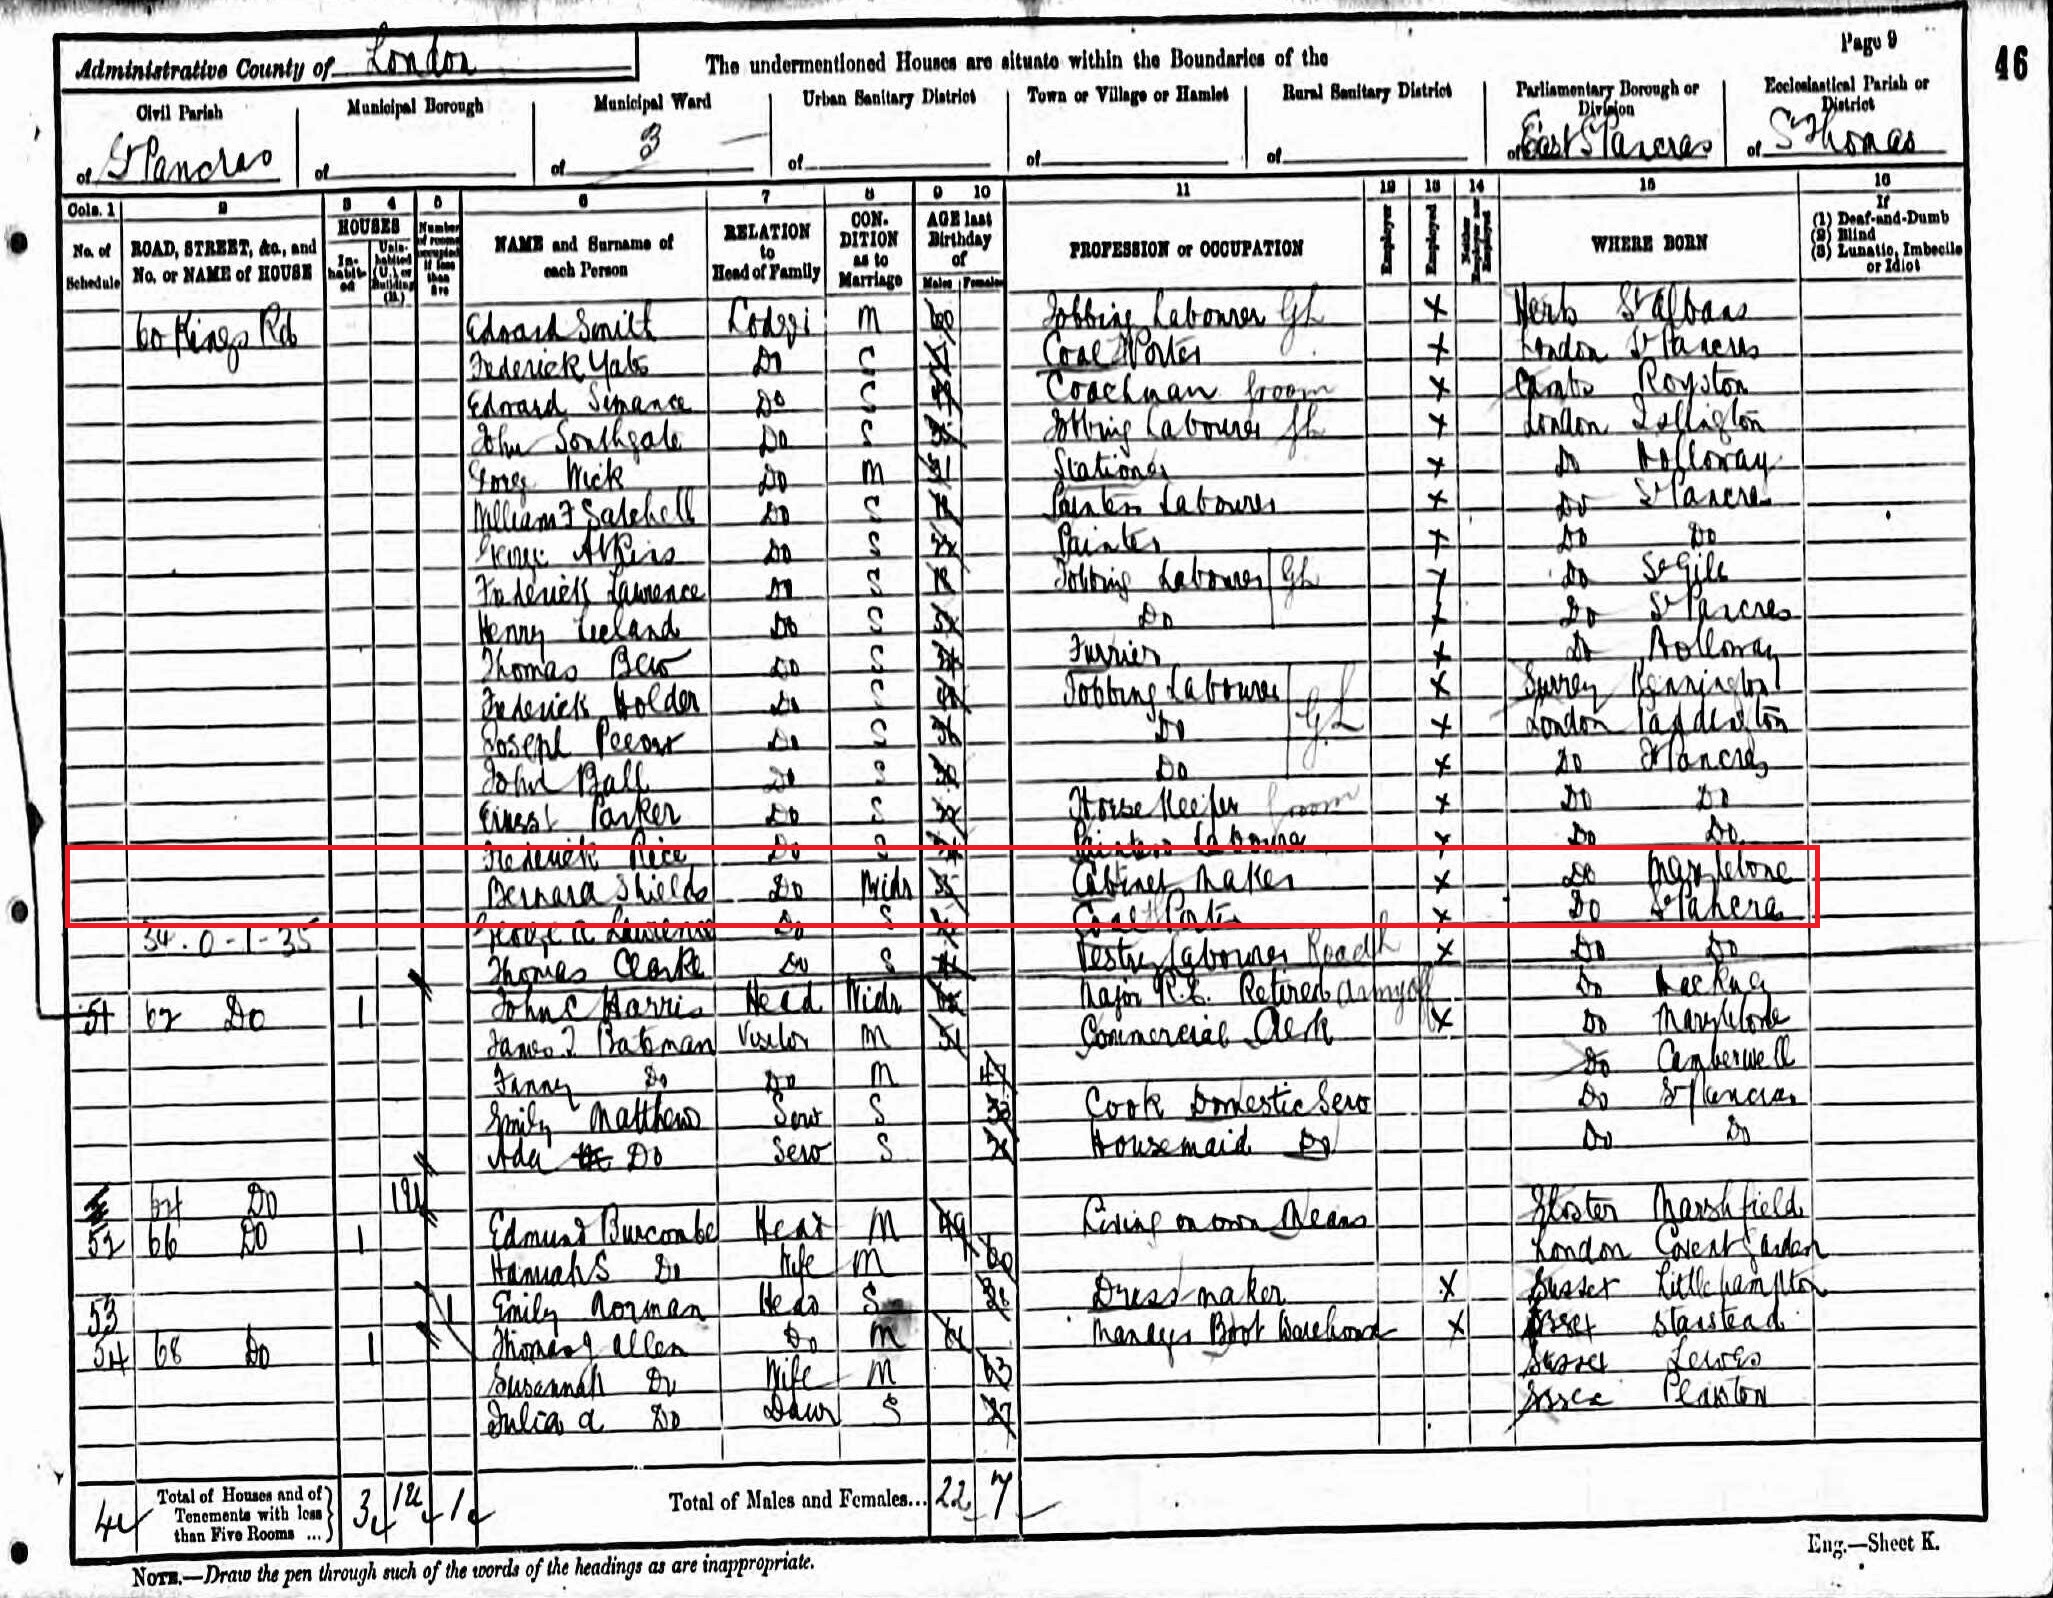 Page 9
46
Administrative County of London
The undermentioned Houses are situate within the Boundaries of the
Civil Parish of St Pancras
Municipal Borough of
Municipal Ward of 3
Urban Sanitary District of
Town or Village or Hamlet of
Rural Sanitary District of
Parliamentary Borough or Division of East St Pancras
Ecclesiastical Parish or District of St Thomas
Cols. 1 2 3 4 5 6 7 8 9 10 11 12 13 14 15 16
No. of Schedule
ROAD, STREET, &c., and No. or NAME of HOUSE
HOUSES
In-habit-ed
Unin-habited (U.), or Building (B.)
Number of rooms occupied if less than five
NAME and Surname of each Person
RELATION to Head of Family
CON-DITION as to Marriage
AGE last Birthday of
Males Females
PROFESSION or OCCUPATION
Employer
Employed
Neither Employer nor Employed
WHERE BORN
If
(1) Deaf-and-Dumb
(2) Blind
(3) Lunatic, Imbecile or Idiot
60 Kings Rd Edward Smith M Jobbing Labourer GL X Herts St Albans
Frederick Yates Do Coal Porter X London St Pancras
Edward Simance Do Coachman Groom X Cambs Royston
John Southgate Do S Jobbing Labourer GL X London Islington
Wick Do M Stationer X Do Holloway
William F Satchell Do S Labourer X Do St Pancras
George Atkins Do S Painter X Do Do
Frederick Lawrence Do S Jobbing Labourer GL X Do St Giles
Henry Leeland Do S Do X Do St Pancras
Thomas Bew Do S Furrier X Do Holloway
Frederick Holder Do S Jobbing Labourer GL X Surrey Kennington
Joseph Do S 36 Do X London Paddington
John Ball Do S 30 Do X Do St Pancras
Ernest Parker Do S Horse Keeper Groom X Do Do
Frederick Rice Do S Painters Labourer X Do Do
Bernard Shields Do Widr 35 Cabinet Maker X Do Marylebone
George A Lawrence Do S Coal Porter X Do St Pancras
34 . 0 - 1 - 35 Thomas Clarke Do S Vestry Labourer Road X Do Do
51 62 Do 1 John C Harris Head Widr Major R.E. Retired Army off Do Hackney
James T Bateman Visitor M 51 Commercial Clerk X Do Marylebone
Fanny Do Do M 47 Do Camberwell
Emily Matthews Serv S 33 Cook Domestic Serv Do St Pancras
Ada Do Serv S Housemaid Do Do Do
64 Do 1U
52 66 Do 1 Edmund Burcombe Head M 49 Living on own Means Gloster Marshfield
Hannah S Do Wife M 60 London Covent Garden
53 1 Emily Norman Head S Dress maker X Sussex Littlehampton
54 68 Do 1 Thomas J Allen Do M 61 Manager Boot Warehouse X Essex Stanstead
Susannah Do Wife M 63 Sussex Lewes
Julia A Do Daur S 27 Essex Plaistow
4 Total of Houses and of Tenements with less than Five Rooms ... 3 1U 1 Total of Males and Females... 22 7
Eng.—Sheet K.
NOTE.—Draw the pen through such of the words of the headings as are inappropriate.